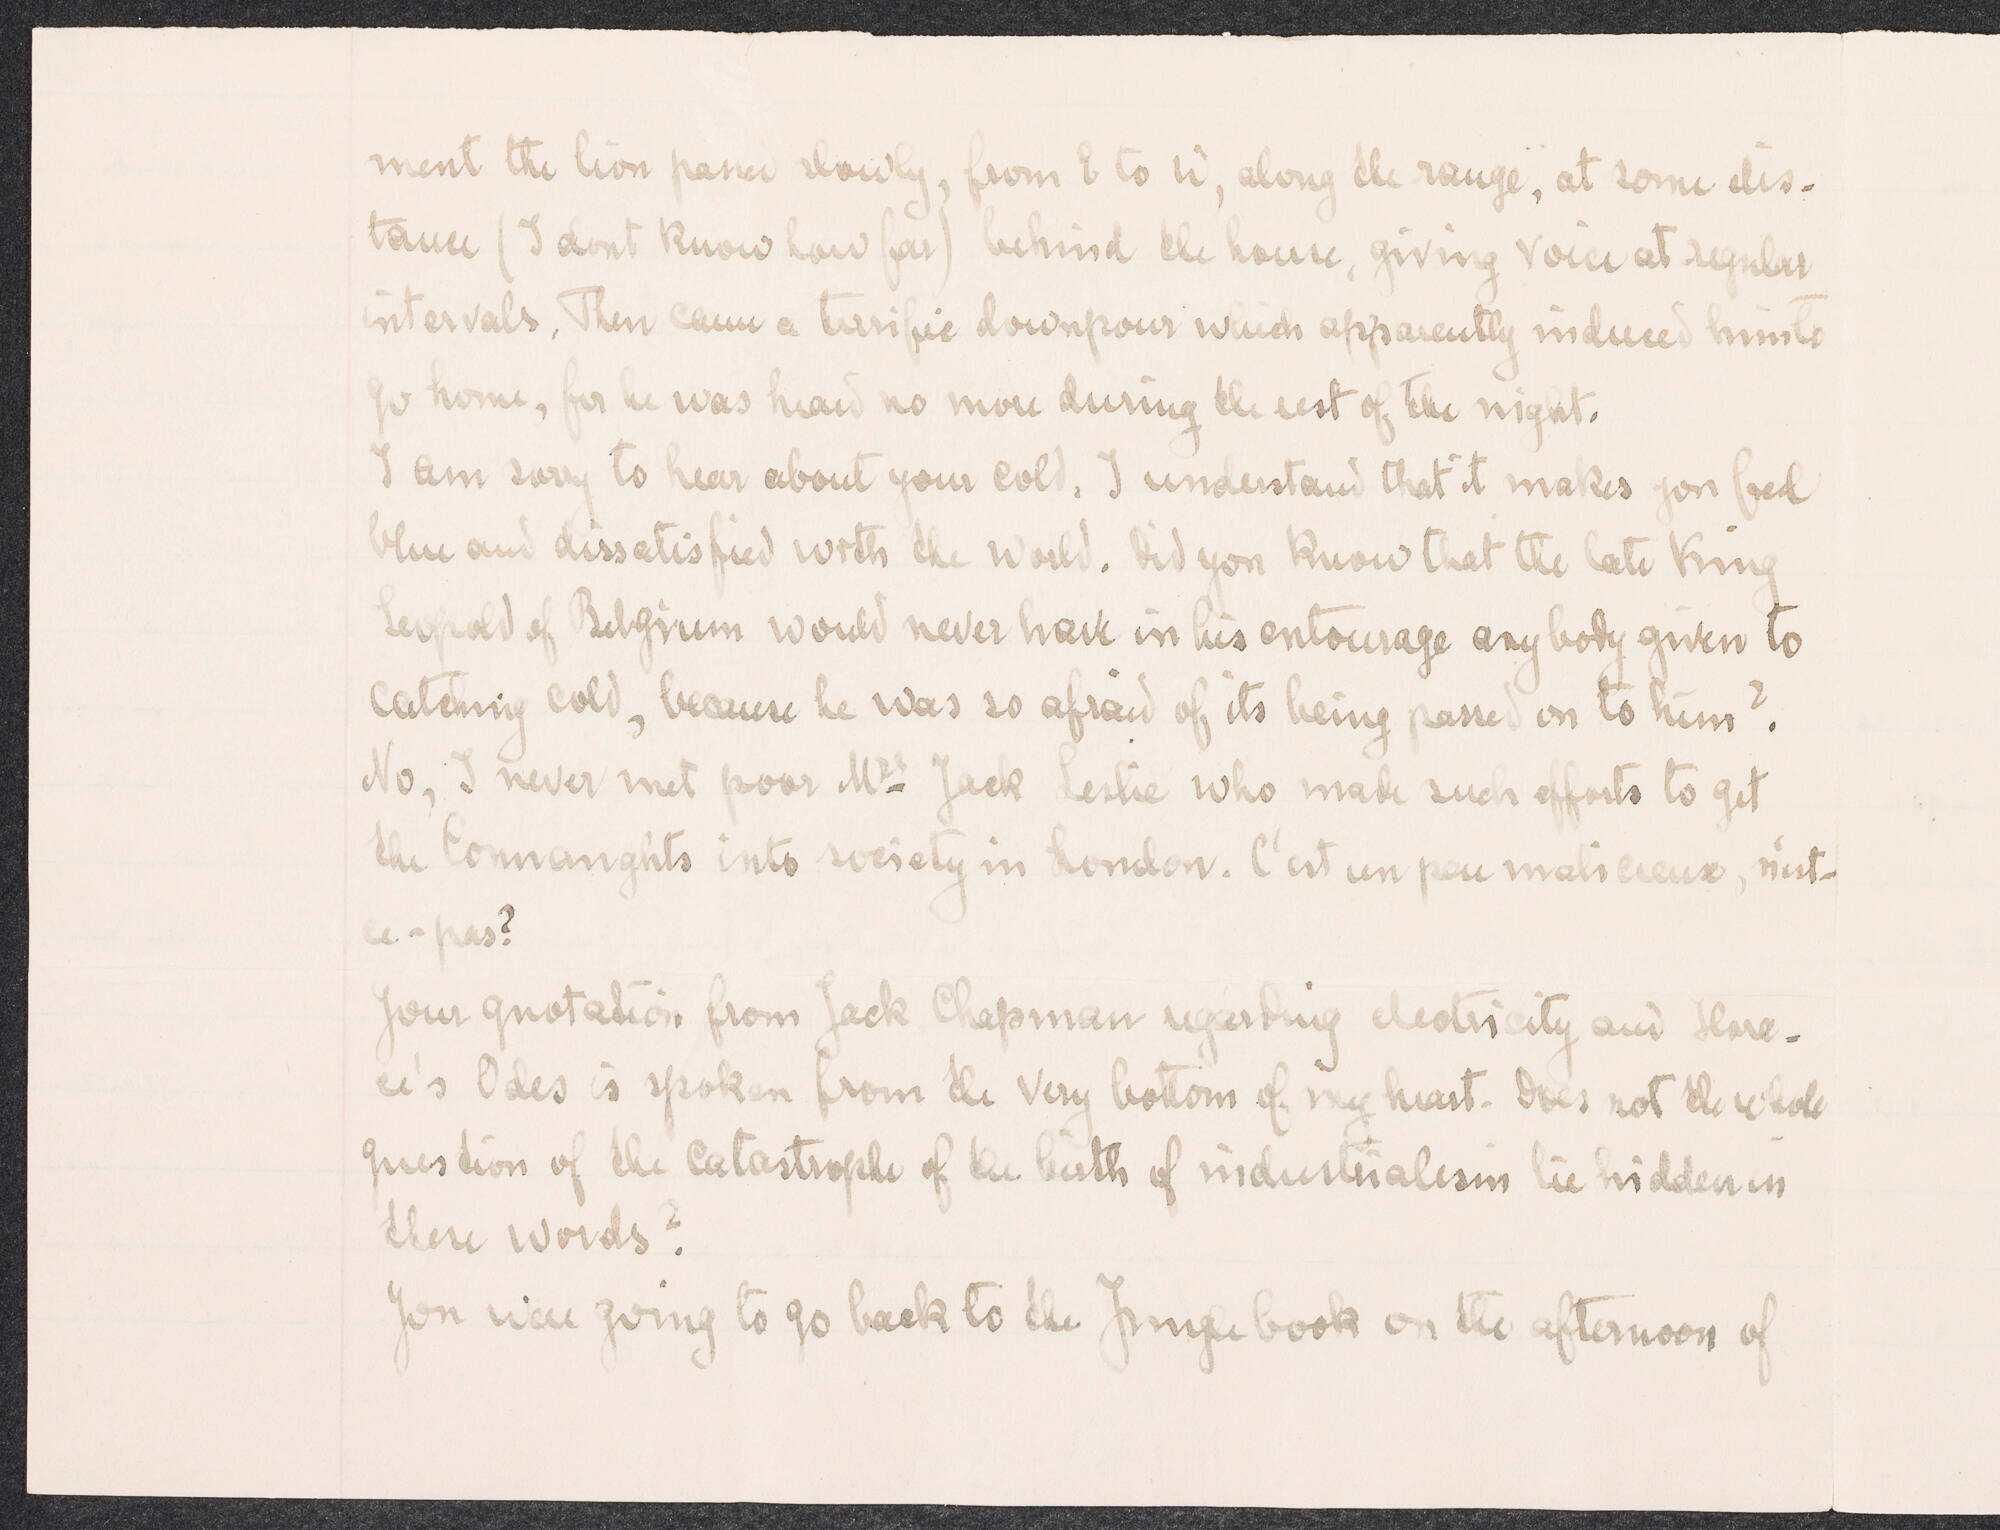 ment the lion passed slowly, from E to W, along the range, at some dis-
tance (I dont know how far) behind the house, giving voice at regular
intervals. Then came a terrific downpour which apparently induced him to
go home, for he was heard no more during the rest of the night.
I am sorry to hear about your cold. I understand that it makes you feel
blue and dissatisfied with the world. Did you know that the late King
Leopold of Belgium would never have in his entourage anybody given to
catching cold, because he was so afraid of its being passed on to him?.
No, I never met poor Mrs Jack Leslie who made such efforts to get
the Connaughts into society in London. C'est un peu malicieux, n'est-
ce-pas?
Your quotation from Jack Chapman regarding electricity and Hora-
ce's Odes is spoken from the very bottom of my heart. Does not the whole
question of the catastrophe of the birth of industrialism lie hidden in
these words?
You were going to go back to the Jungle book on the afternoon of